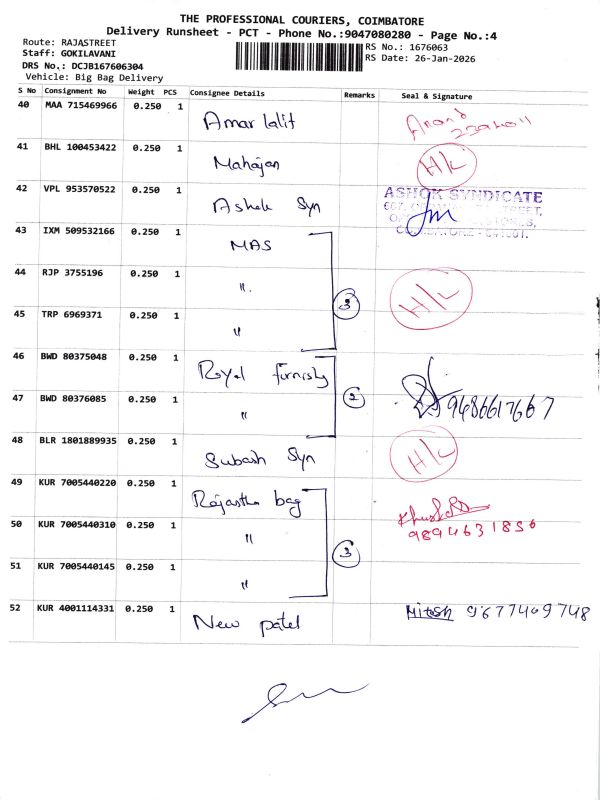 THE PROFESSIONAL COURIERS, COIMBATORE
Delivery Runsheet - PCT - Phone No.:9047080280 - Page No.:4
Route: RAJASTREET
RS No.: 1676063
Staff: GOKILAVANI
RS Date: 26-Jan-2026
DRS No.: DCJB167606304
Vehicle: Big Bag Delivery
S No Consignment No Weight PCS Consignee Details Remarks Seal & Signature
40 MAA 715469966 0.250 1 Amar lalit Anand
41 BHL 100453422 0.250 1 Mahajan H/L
42 VPL 953570522 0.250 1 Ashok Syn ASHOK SYNDICATE
43 IXM 509532166 0.250 1 MAS
44 RJP 3755196 0.250 1 " 3 H/L
45 TRP 6969371 0.250 1 "
46 BWD 80375048 0.250 1 Royal furnishg
47 BWD 80376085 0.250 1 " 2 9486617667
48 BLR 1801889935 0.250 1 Subash Syn H/L
49 KUR 7005440220 0.250 1 Rajastha bag
50 KUR 7005440310 0.250 1 " 3 9894631856
51 KUR 7005440145 0.250 1 "
52 KUR 4001114331 0.250 1 New patel Hitesh 9677409748